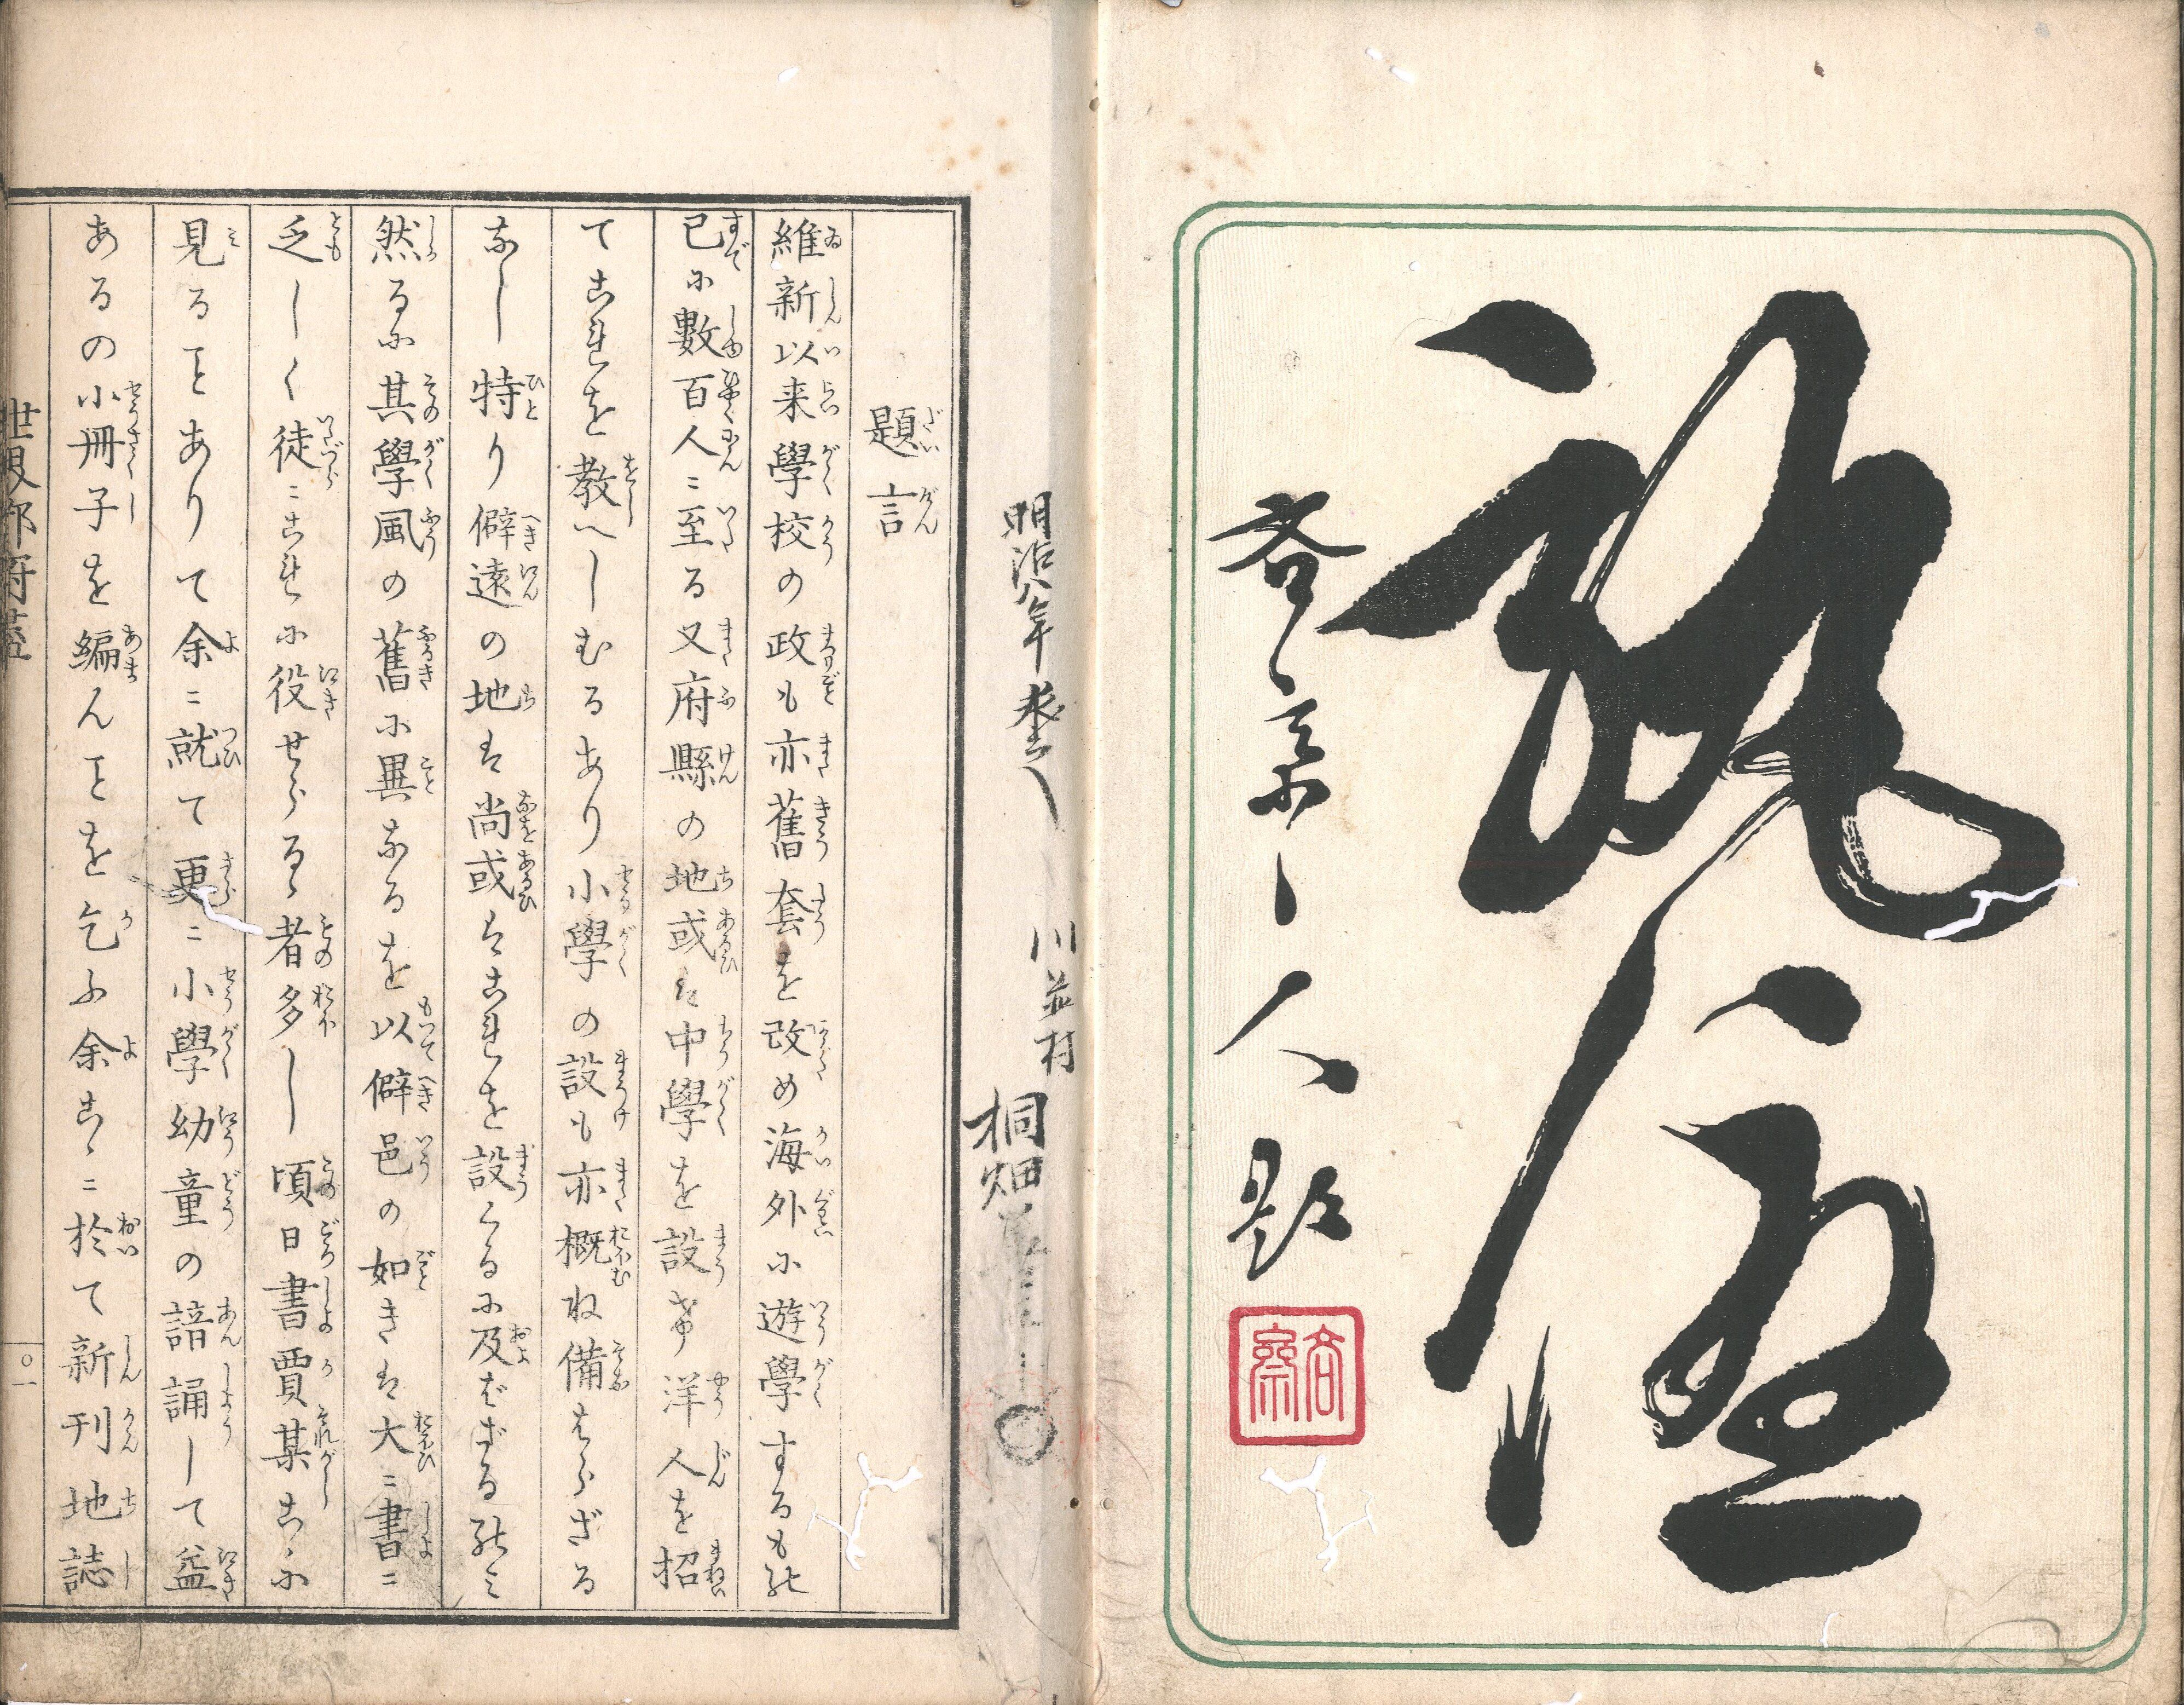 人題
明治八年
川並村
桐畑
題言
維新以来學校の政も亦舊套を改め海外に遊學するもの
已に數百人ニ至る又府縣の地或は中學を設け洋人を招
てこれを教へしむるあり小學の設も亦概ね備はらざる
なし特り僻遠の地は尚或はこれを設くるに及ばざるのミ
然るに其學風の舊に異なるを以僻邑の如きは大ニ書ニ
乏しく徒ニこれに役せらるゝ者多し頃日書賈某こゝに
見るヿありて余ニ就て更ニ小學幼童の諳誦して益
あるの小冊子を編んヿを乞ふ余こゝニ於て新刊地誌
〇一